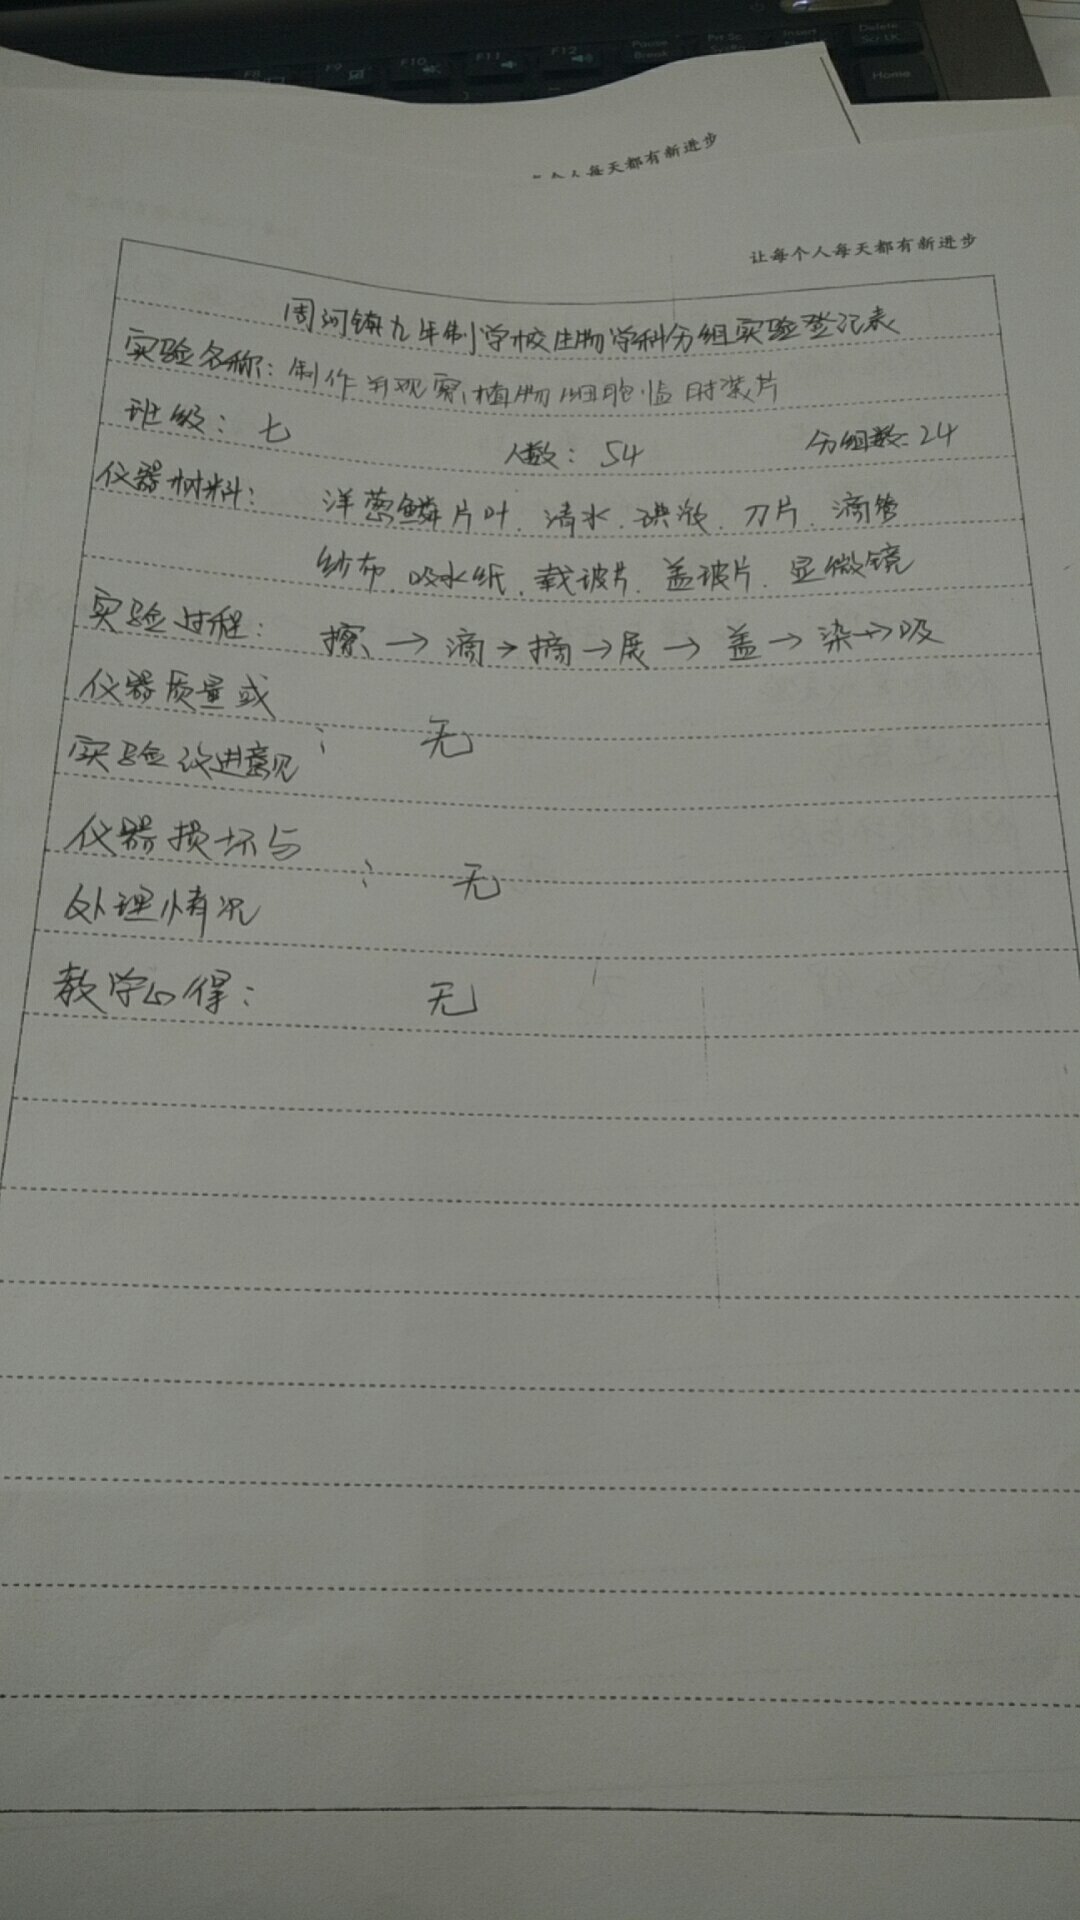 F9
F10
F11
F12
Pause
Break
Prt Sc
Insert
Delete
Home
每天都有新进步
让每个人每天都有新进步
周河镇九年制学校生物学科分组实验登记表
实验名称：制作并观察植物细胞临时装片
班级：七 人数：54 分组数：24
仪器材料：洋葱鳞片叶、清水、碘液、刀片、滴管
纱布、吸水纸、载玻片、盖玻片、显微镜
实验过程：擦→滴→摘→展→盖→染→吸
仪器质量或
实验改进意见：无
仪器损坏与
处理情况：无
教学心得：无